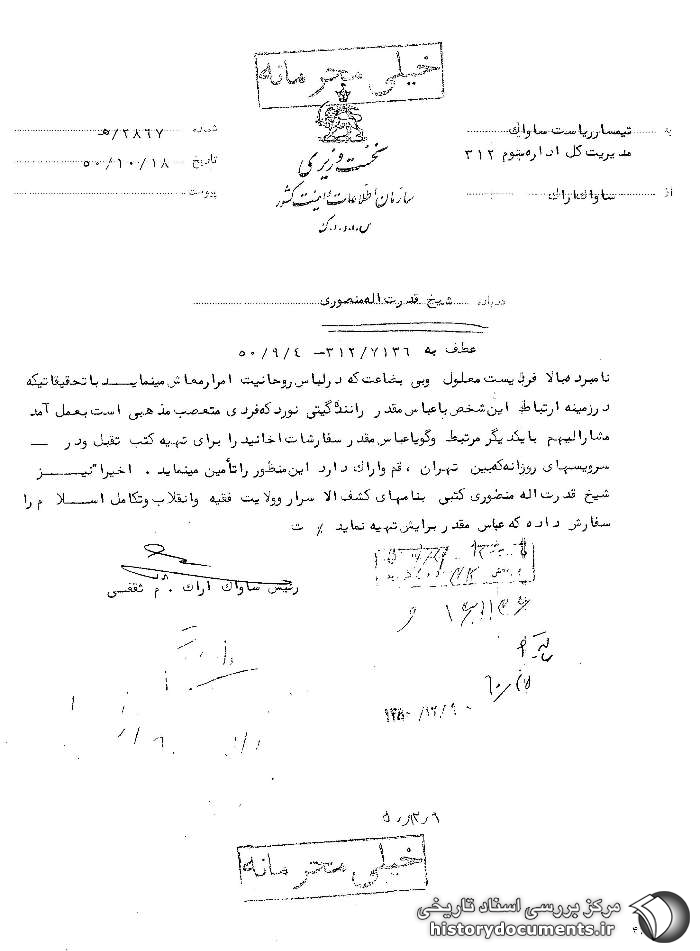 خیلی محرمانه
به تیمسار ریاست ساواك
مدیریت کل اداره سوم ۳۱۲
از ساواك اراك
نخست وزیری
سازمان اطلاعات و امنیت کشور
س.ا.و.ا.ک
شماره ۵/۲۸۶۷
تاریخ ۵۰/۱۰/۱۸
پیوست
درباره شیخ قدرت اله منصوری
عطف به ۳۱۲/۷۱۳۶ – ۵۰/۹/۴
نامبرده بالا فردیست معلول وبی بضاعت که درلباس روحانیت امرارمعاش مینماید با تحقیقاتیکه
درزمینه ارتباط این شخص باعباس مقدر رانندگیتی نورد که فردی متعصب مذهبی است بعمل آمد
مشارالیهم بایکدیگر مرتبط وگویاعباس مقدر سفارشات اخانیدرا برای تهیه کتب تقبل ودر —
سرویسهای روزانه کهبین تهران ، قم واراك دارد این منظور راتأمین مینماید . اخیرا" نیـــز
شیخ قدرت اله منصوری کتبی بنامهای کشف الا سرار وولایت فقیه وانقلاب وتکامل اســلا م را
سفارش داده که عباس مقدر برایش تهیه نماید ٪ ت
رئیس ساواك اراك . م ثقفی
خیلی محرمانه
مرکز بررسی اسناد تاریخی
historydocuments.ir